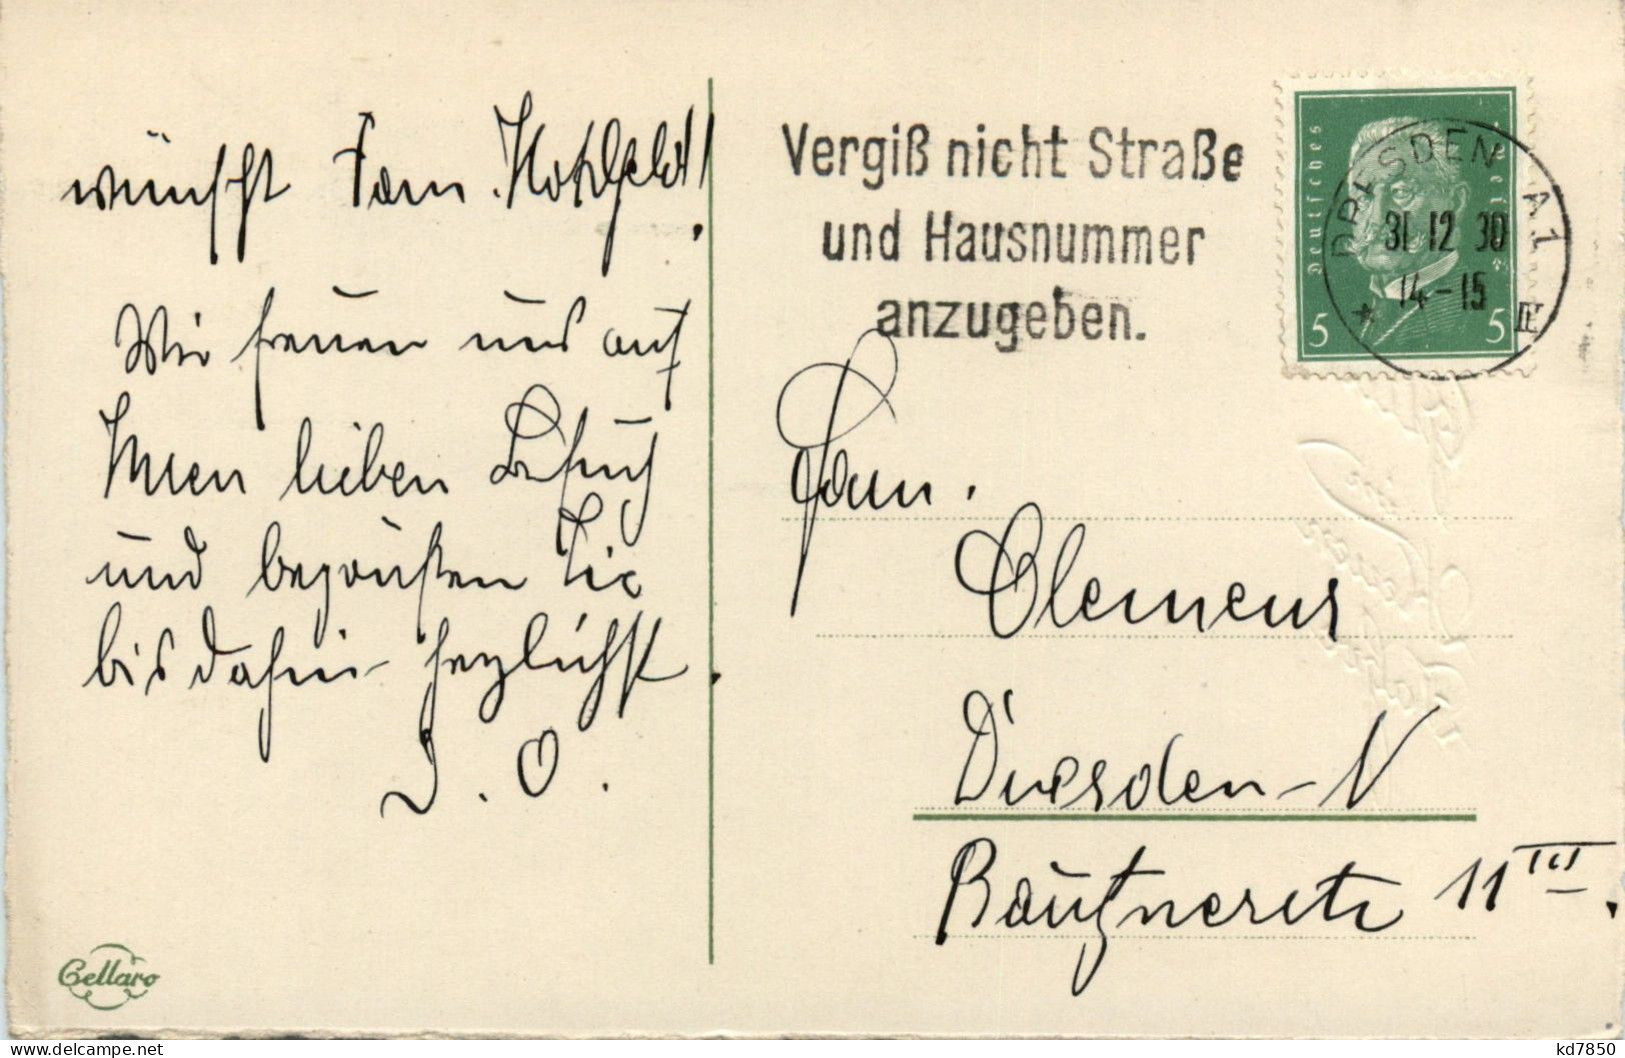 wünscht Fam. Kohlfeld!
Wir freuen uns auf
Ihren lieben Besuch
und begrüßen Sie
bis dahin herzlichst.
D. O.
Cellaro
Vergiß nicht Straße
und Hausnummer
anzugeben.
Deutsches Reich
5 5
DRESDEN A1
31 12 30
14-15
Fam.
Clemens
Dresden-N
Bautznerstr 11 III.
kd7850